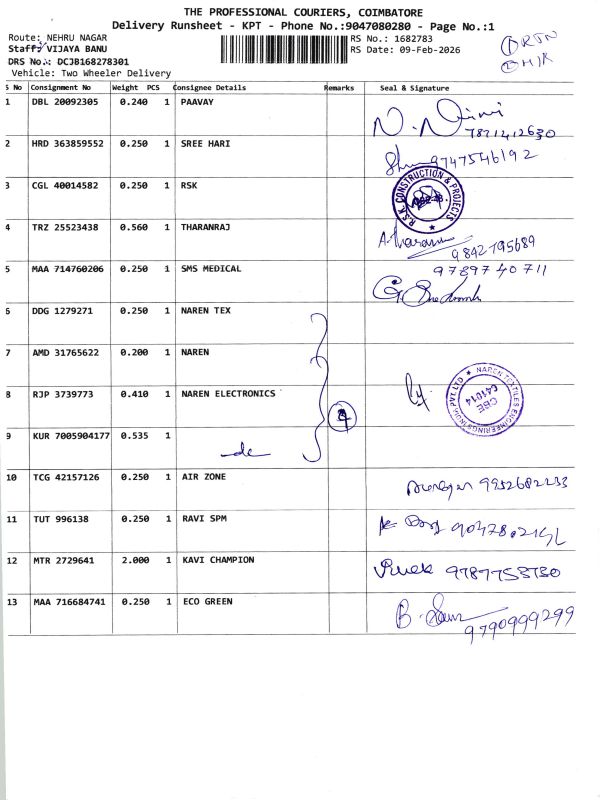 THE PROFESSIONAL COURIERS, COIMBATORE
Delivery Runsheet - KPT - Phone No.:9047080280 - Page No.:1
Route: NEHRU NAGAR
RS No.: 1682783
Staff: VIJAYA BANU
RS Date: 09-Feb-2026
DRS No.: DCJB168278301
Vehicle: Two Wheeler Delivery
① RTN
② MIK
S No Consignment No Weight PCS Consignee Details Remarks Seal & Signature
1 DBL 20092305 0.240 1 PAAVAY
7871412630
2 HRD 363859552 0.250 1 SREE HARI 9747546192
3 CGL 40014582 0.250 1 RSK R.S.K. CONSTRUCTION & PROJECTS
4 TRZ 25523438 0.560 1 THARANRAJ 9842795689
5 MAA 714760206 0.250 1 SMS MEDICAL 9789740711
6 DDG 1279271 0.250 1 NAREN TEX
7 AMD 31765622 0.200 1 NAREN
8 RJP 3739773 0.410 1 NAREN ELECTRONICS 4 NAREN TEXTILES ENGINEERINGS INDIA PVT LTD CBE 641014
9 KUR 7005904177 0.535 1 de
10 TCG 42157126 0.250 1 AIR ZONE 9952682233
11 TUT 996138 0.250 1 RAVI SPM
12 MTR 2729641 2.000 1 KAVI CHAMPION Vivek 9787753730
13 MAA 716684741 0.250 1 ECO GREEN 9790999299